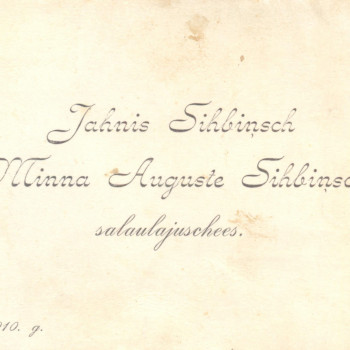 Jahnis Sihbiņsch
Minna Auguste Sihbiņsc
salaulajuschees.
910. g.